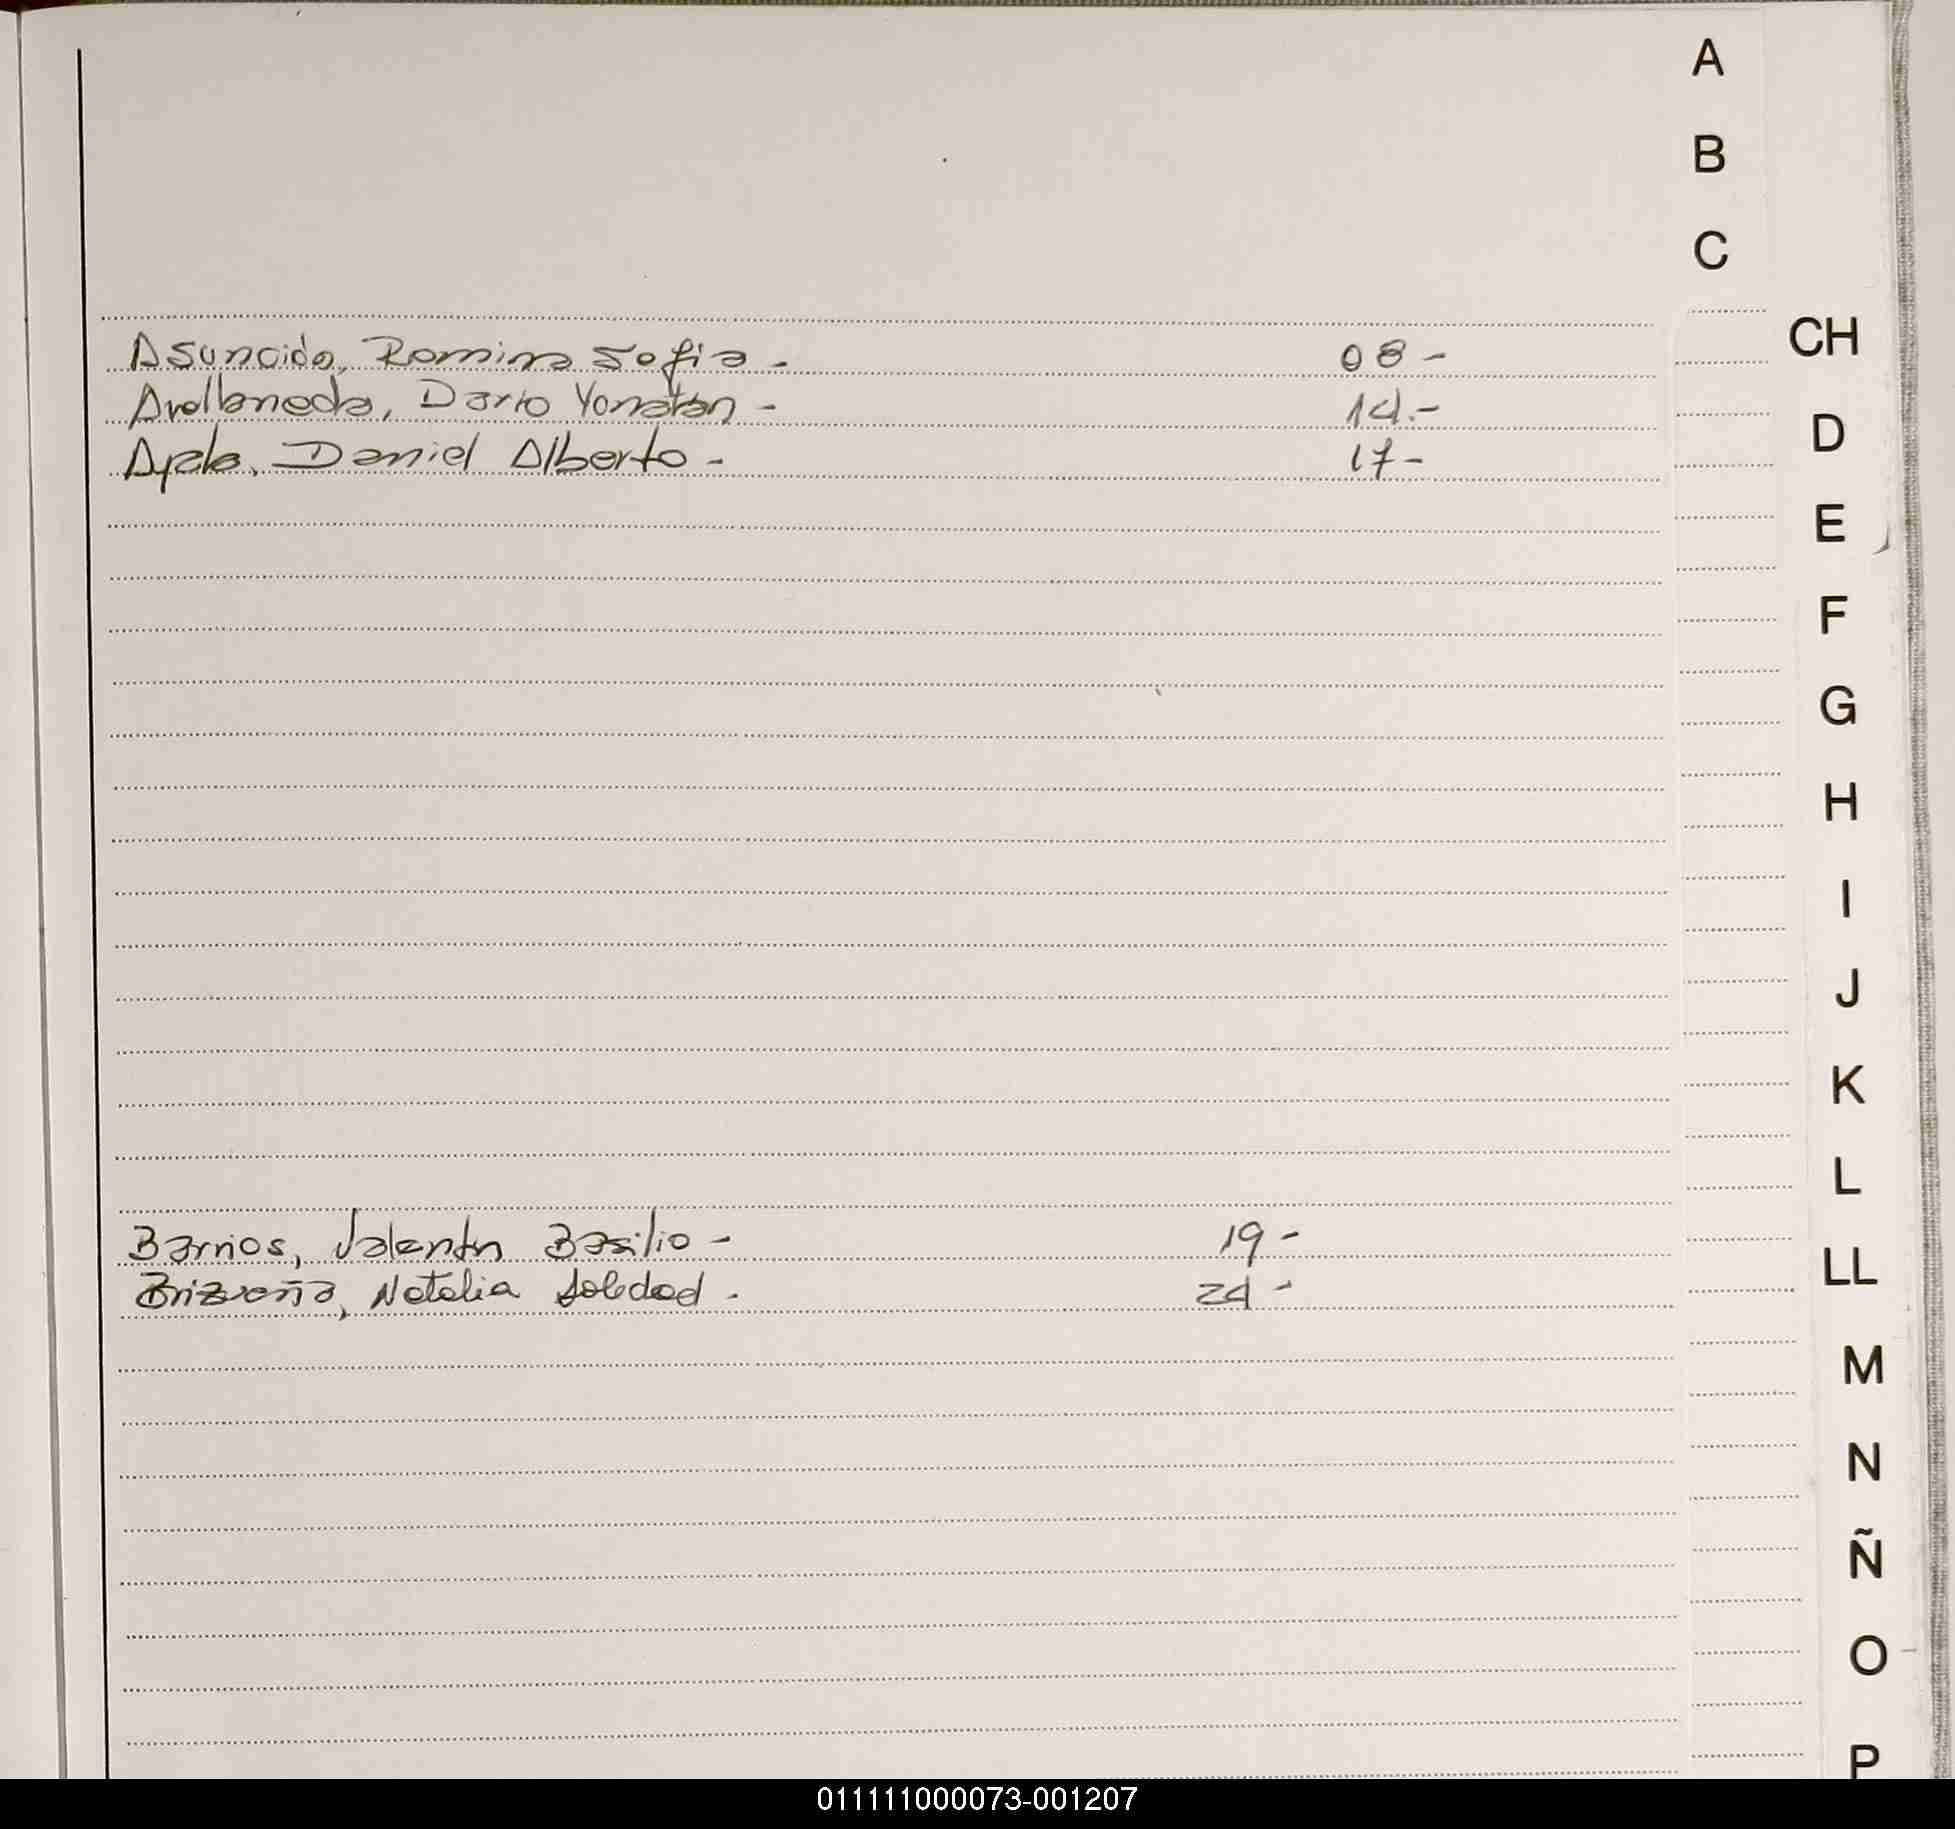 A
B
C
CH
Asuncida, Romina Sofia - 08 -
Avellaneda, Dario Yonatan - 14.-
D
Ayala, Daniel Alberto - 17 -
E
F
G
H
I
J
K
L
Barrios, Valentin Basilio - 19 -
LL
Brizueña, Natalia Soledad . 24 -
M
N
Ñ
O
P
011111000073-001207